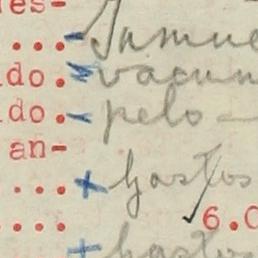 es-
...- Jamue
do. - vacun
do. - pelo -
an-
... + gastos
.... 6.0
+ gastos